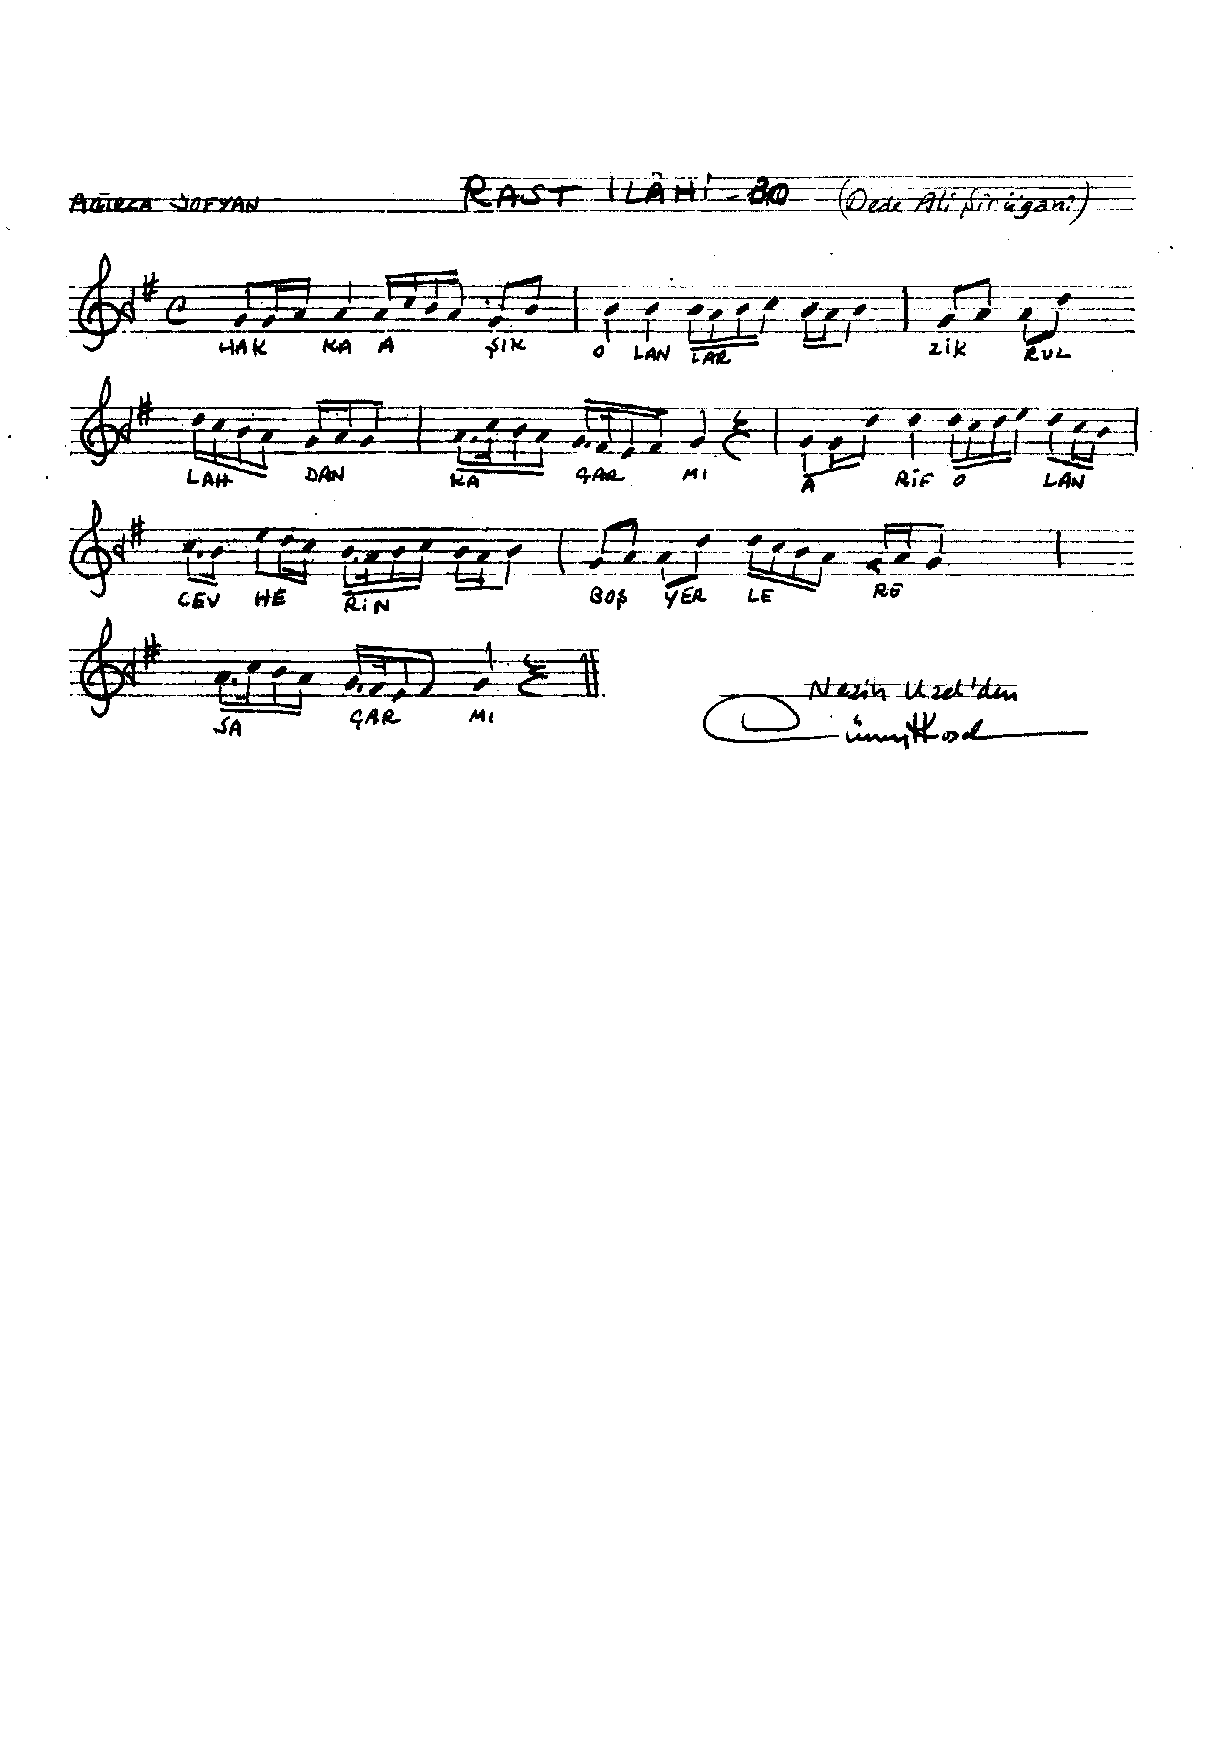 AĞIRCA SOFYAN RAST İLÂHİ - 80 (Dede Ali Şirügani)
HAK KA A ŞIK O LAN LAR ZİK RUL
LAH DAN KA ÇAR MI A RİF O LAN
CEV HE RİN BOŞ YER LE RE
SA ÇAR MI
Nezih Uzel'den